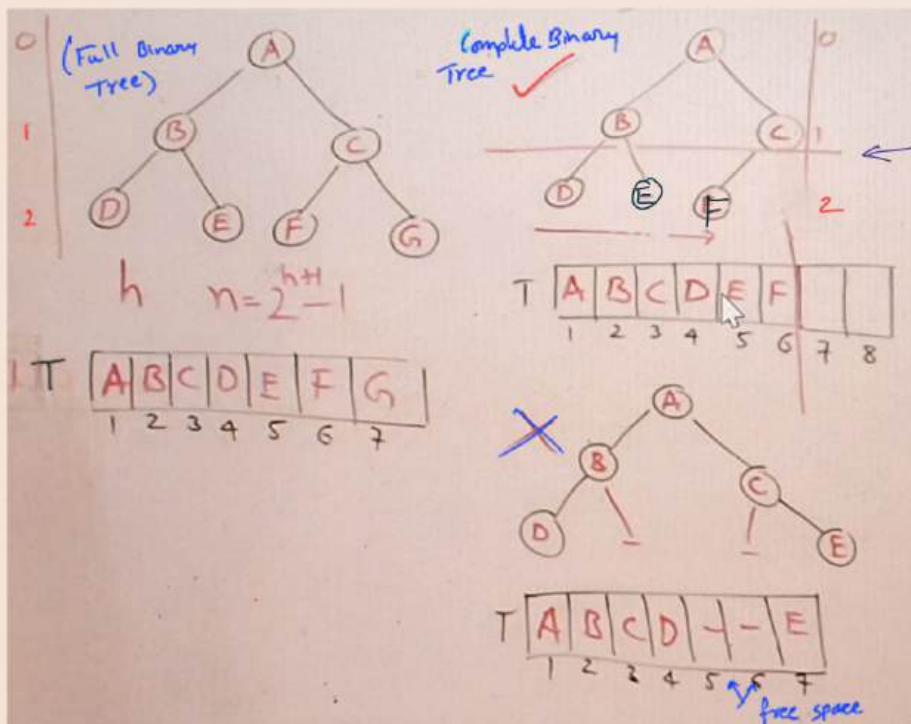 0
1
2
(Full Binary
Tree)
A
B
C
D
E
F
G
h n=2^{h+1}-1
T A B C D E F G
1 2 3 4 5 6 7
Complete Binary
Tree
A
B
C
D
E
F
0
1
2
T A B C D E F
1 2 3 4 5 6 7 8
A
B
C
D
–
–
E
T A B C D – – E
1 2 3 4 5 6 7
free space